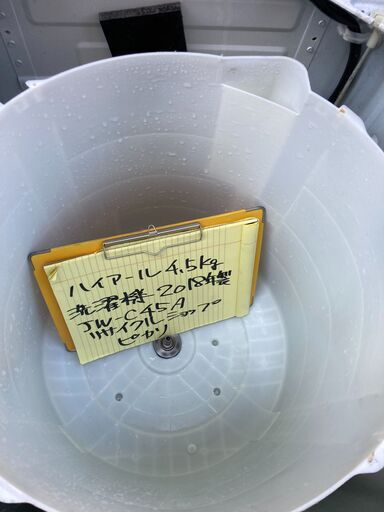 ハイアール4.5kg
洗濯機 2018年製
JW-C45A
リサイクルショップ
ピカソ